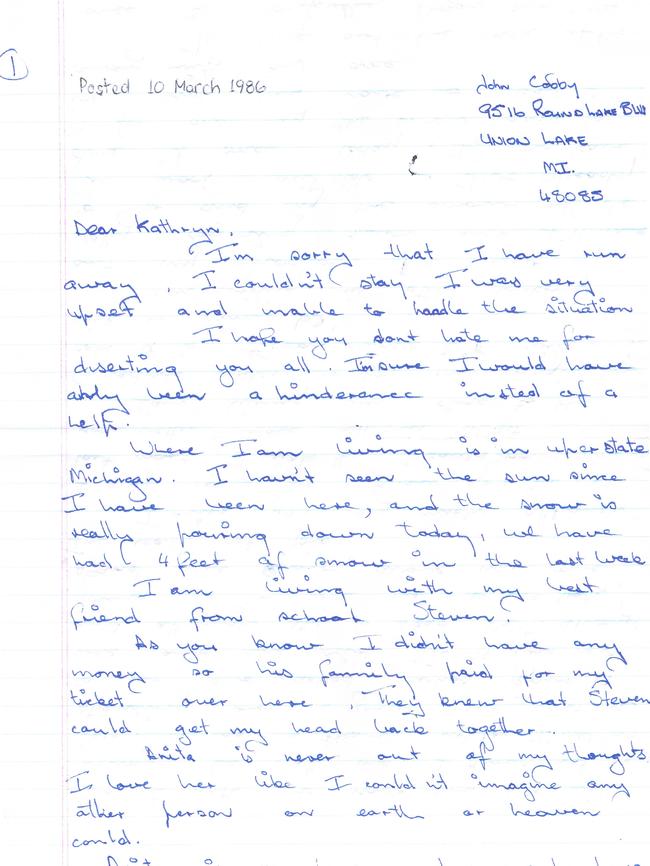 1
Posted 10 March 1986
John Cobby
9516 ROUND LAKE BLVD
UNION LAKE
MI.
48085
Dear Kathryn,
I'm sorry that I have run
away, I couldn't stay I was very
upset and unable to handle the situation
I hope you dont hate me for
diserting you all. I'm sure I would have
only been a hinderence insted of a
help.
Where I am living is in uper state
Michigan. I havn't seen the sun since
I have been here, and the snow is
really pouring down today, we have
had 4 feet of snow in the last week
I am living with my best
friend from school Steven.
As you know I didn't have any
money so his family paid for my
ticket over here. They knew that Steven
could get my head back together.
Anita is never out of my thoughts
I love her like I could n't imagine any
other person on earth or heaven
could.